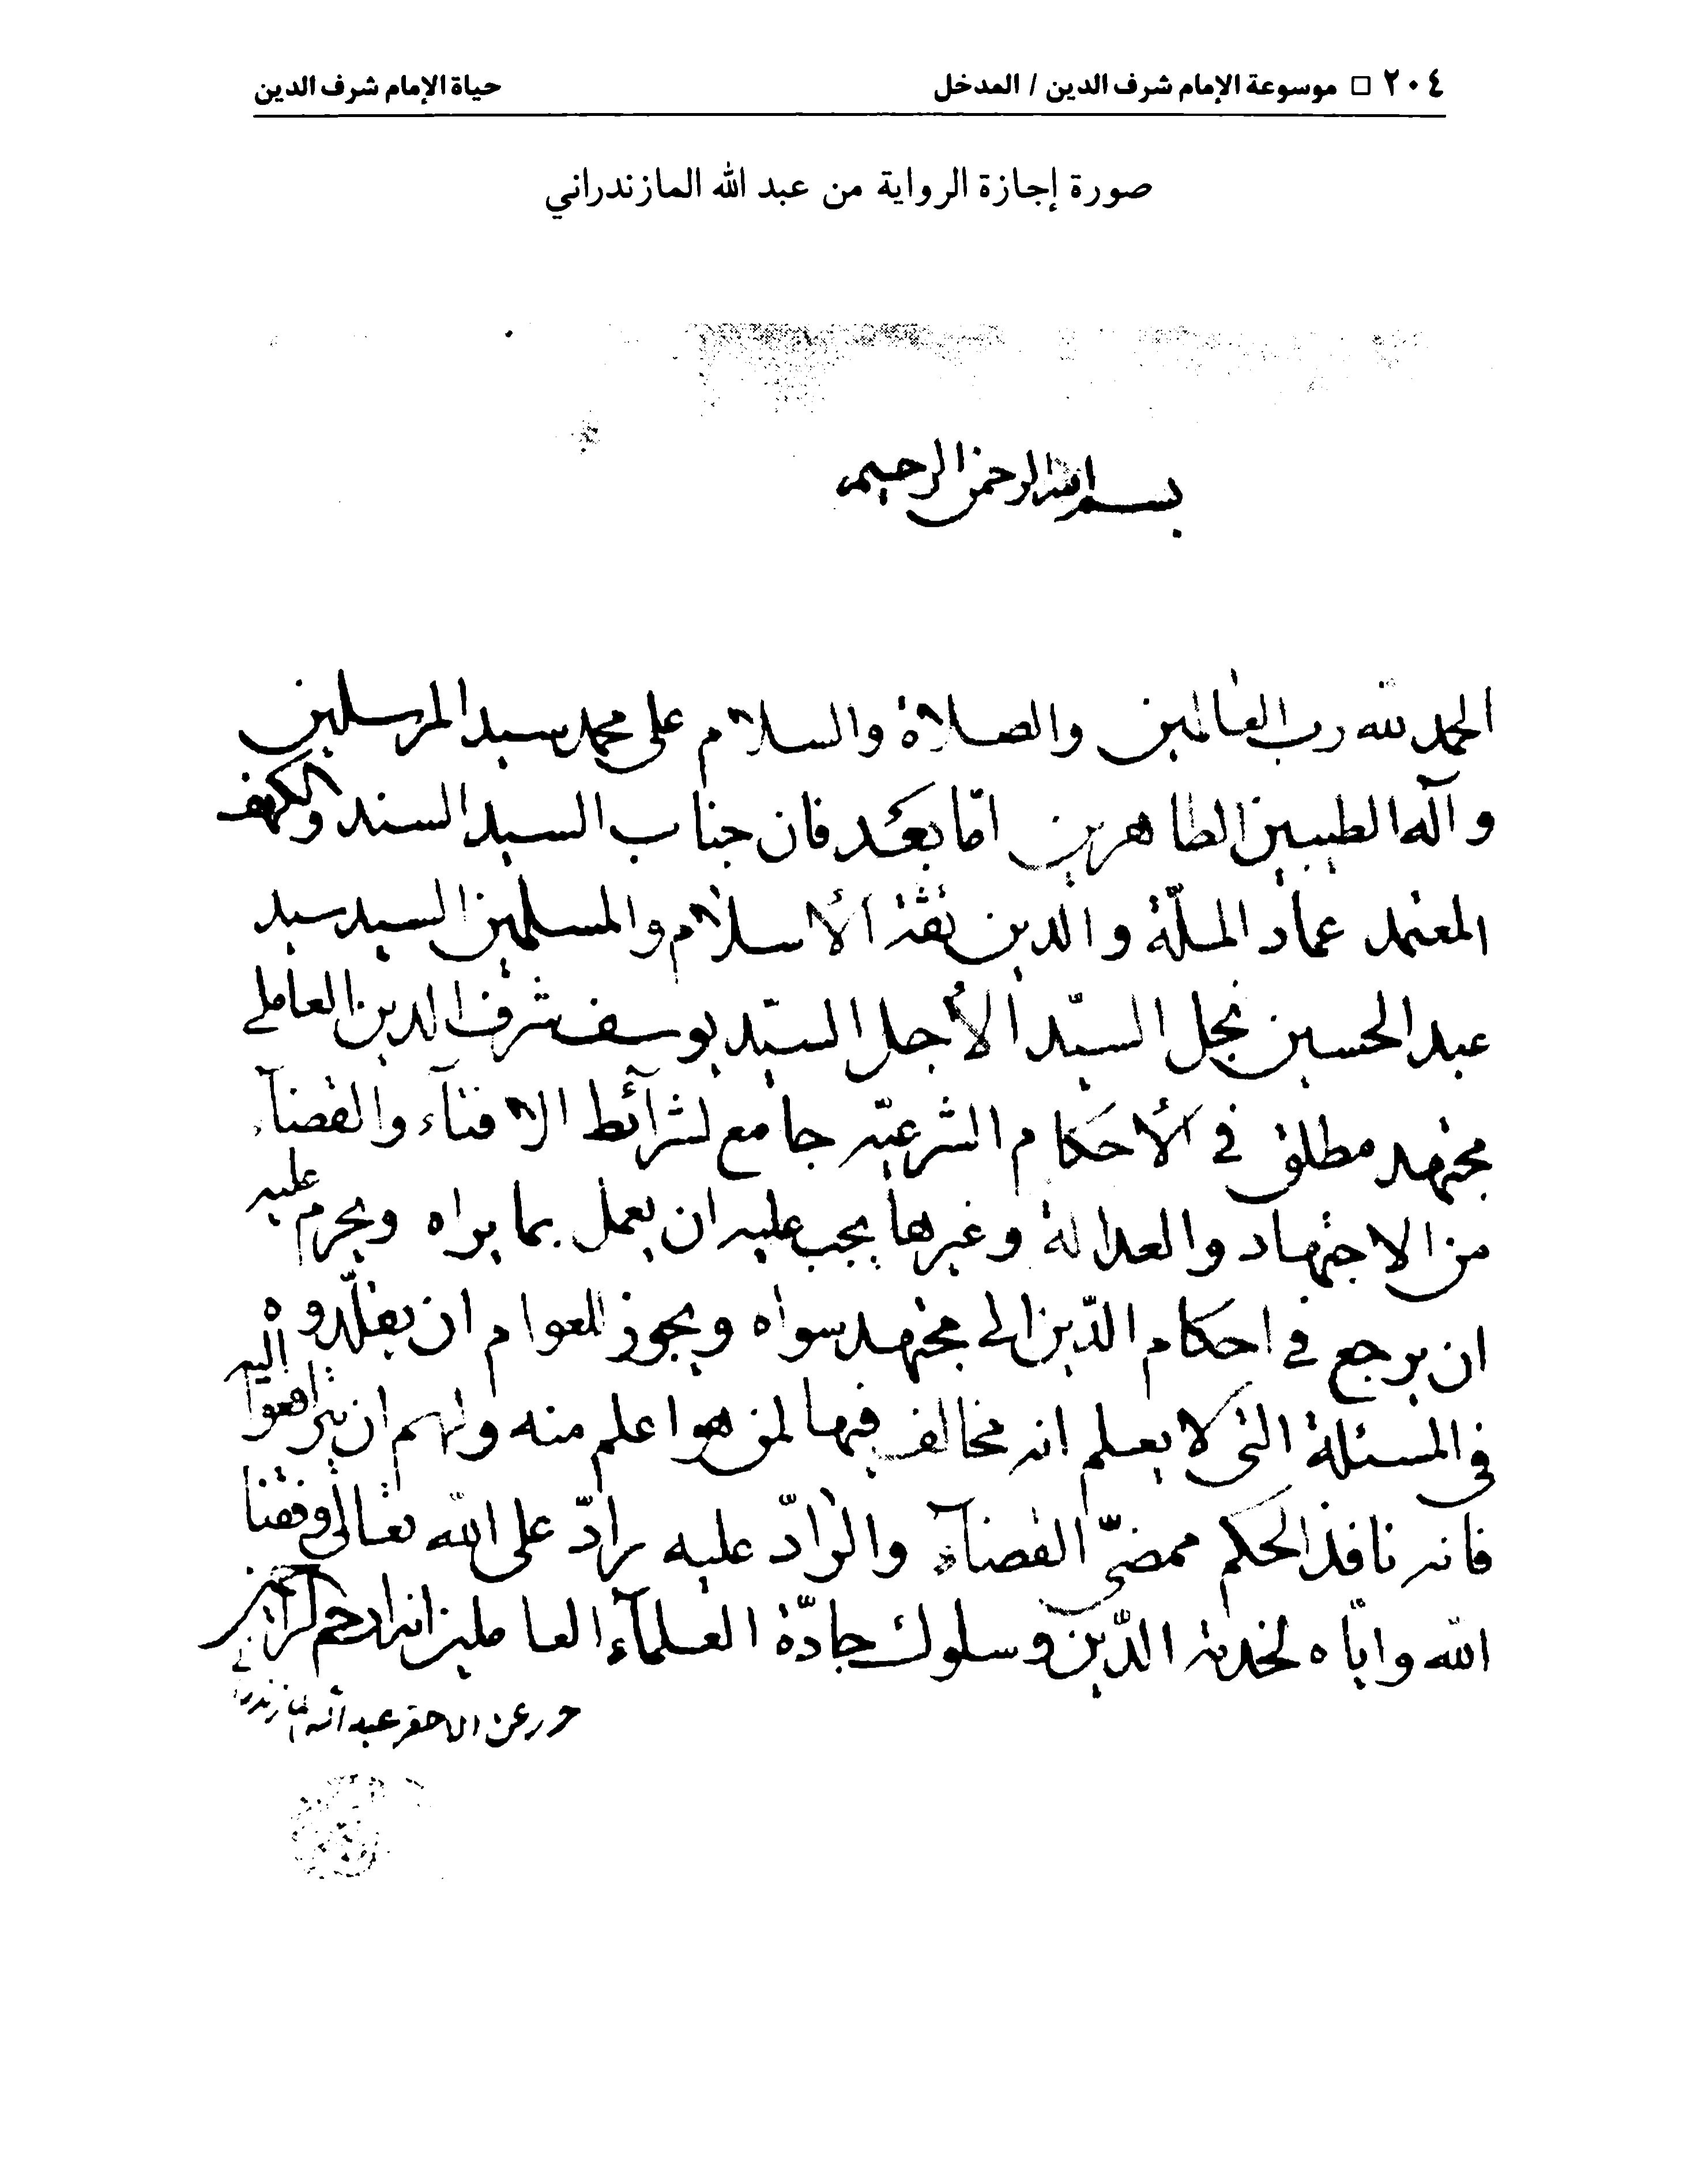 ٢٠٤ □ موسوعة الإمام شرف الدين / المدخل
حياة الإمام شرف الدين
صورة إجازة الرواية من عبد الله المازندراني
بسم الله الرحمن الرحيم
الحمد لله رب العالمين والصلاة والسلام على محمد سيد المرسلين
وآله الطيبين الطاهرين امّا بعد فان جناب السيد السند والكهف
المعتمد عماد الملّة والدين ثقة الأسلام والمسلمين السيد سيد
عبد الحسين نجل السيّد الأجل السيّد يوسف شرف الدين العاملي
مجتهد مطلق في الأحكام الشرعيّه جامع لشرآئط الافتآء والقضآء
من الاجتهاد والعدالة وغيرها يجب عليه ان يعمل بما يراه ويحرم عليه
ان يرجع في احكام الدّين الى مجتهد سواه ويجوز للعوام ان يقلّدوه
في المسئلة التي لا يعلم انه مخالف فيها لمن هو اعلم منه ولهم ان يترافعوا اليه
فانه نافذ الحكم ممضيّ القضآء والرادّ عليه رادّ على الله تعالى وفقنا
الله وايّاه لخدمة الدّين وسلوك جادّة العلمآء العاملين انه ارحم الراحمين
حرره عن الاحقر عبد الله المازندراني